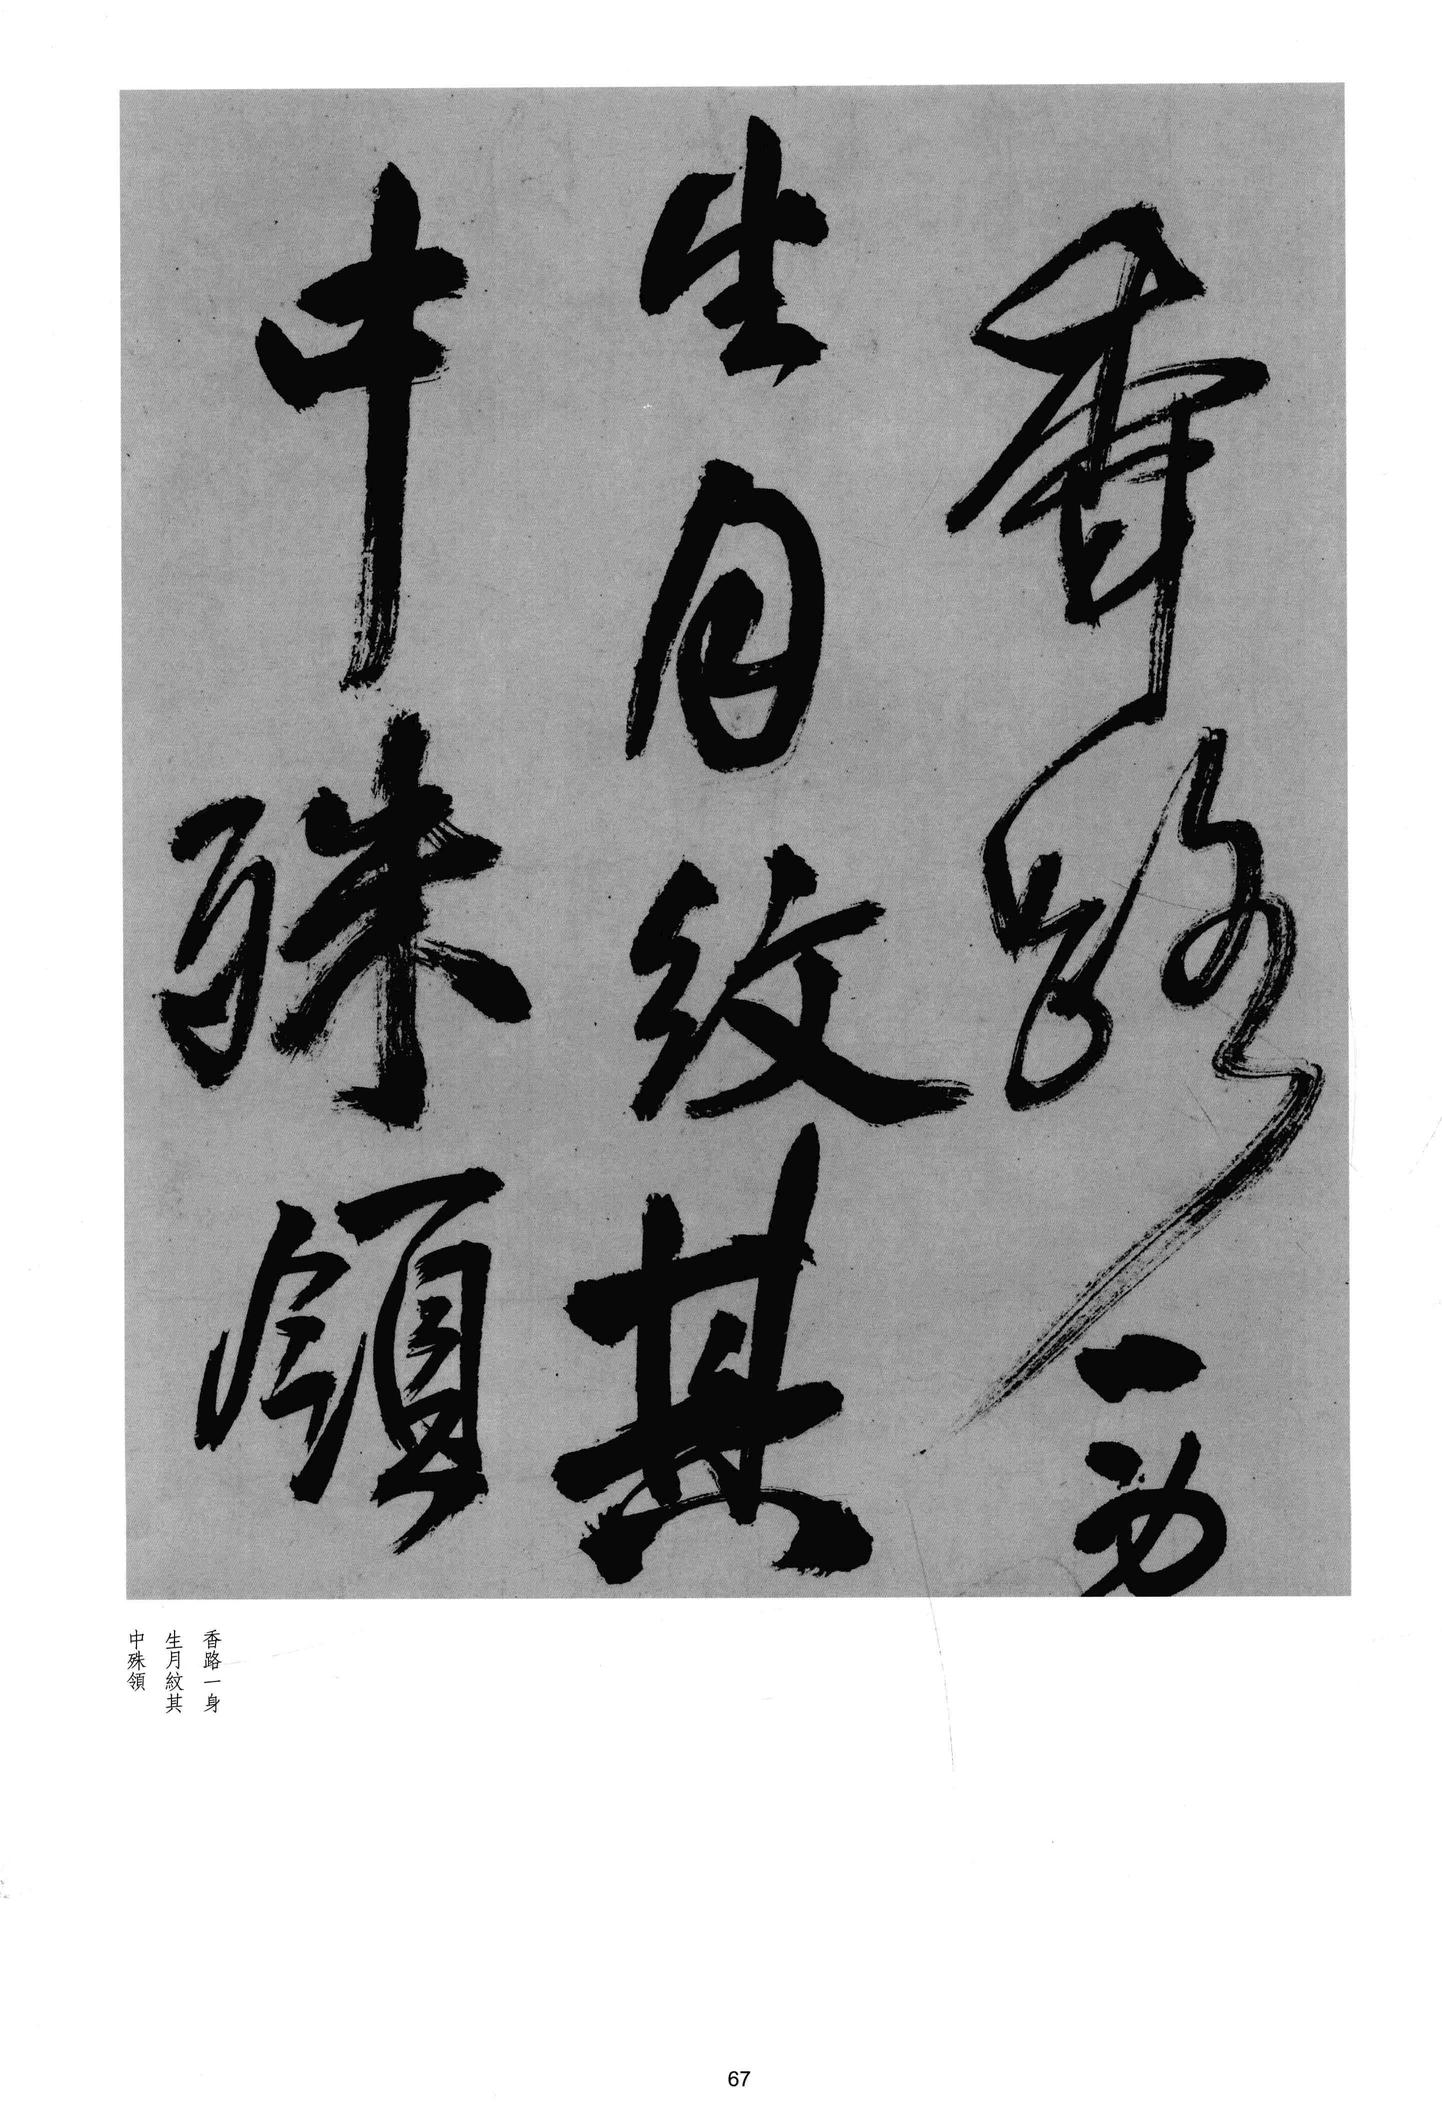 香路一身
生月紋其
中殊領
香路一身
生月紋其
中殊領
67